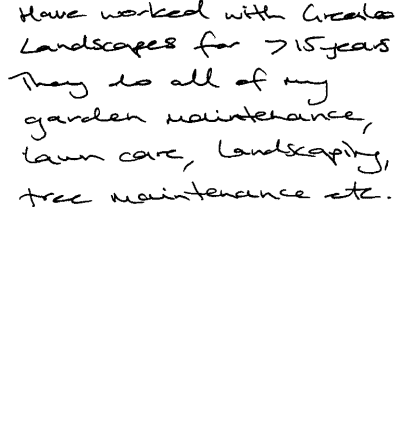 Have worked with
Landscapes for >15 years
They do all of my
garden maintenance,
lawn care, landscaping,
tree maintenance etc.